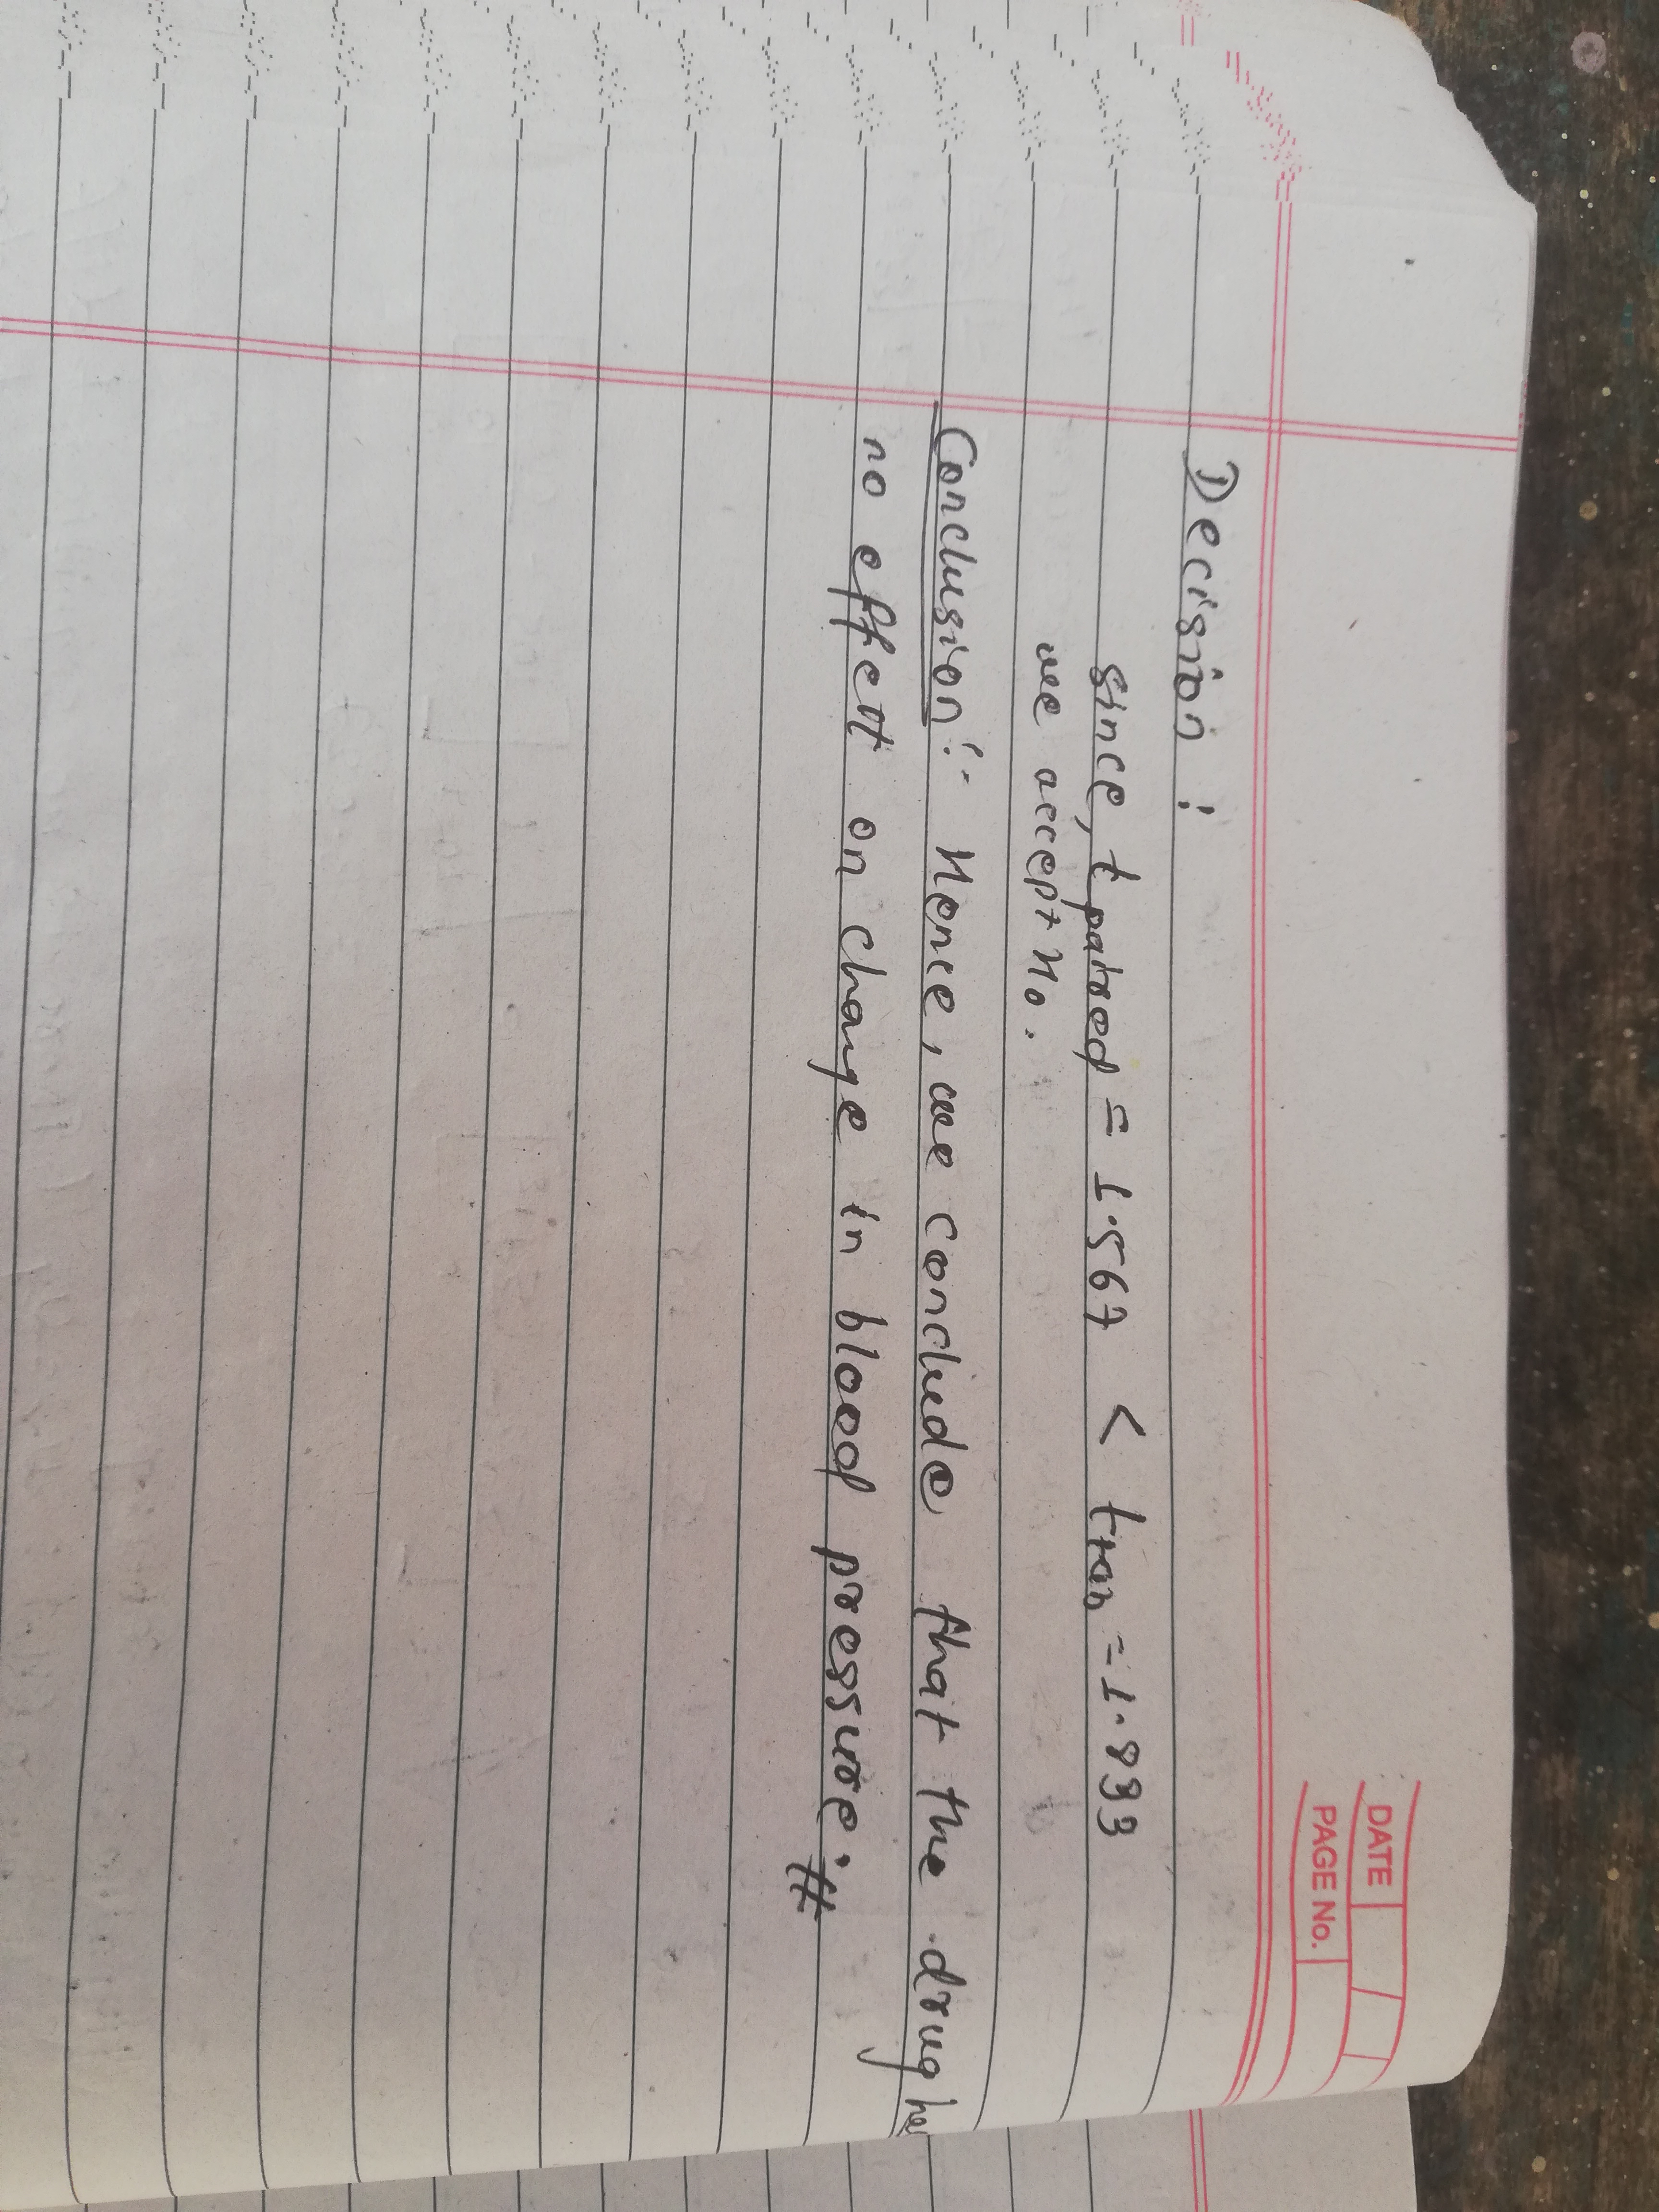 DATE
PAGE No.
Decision :
since, t paired = 1.567 < ttab = 1.833
we accept H0.
Conclusion :- Hence, we conclude that the drug
no effect on change in blood pressure.#